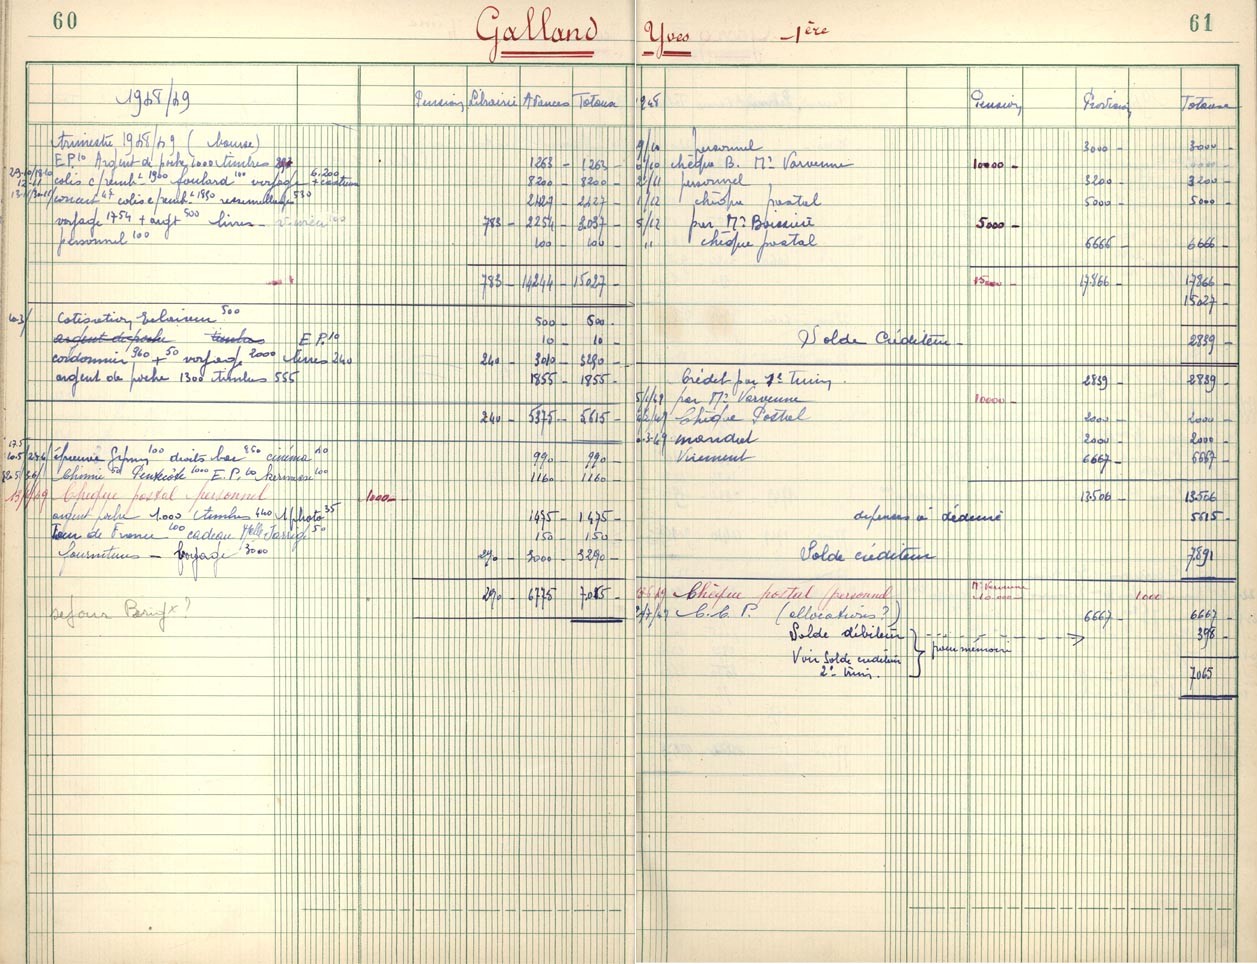 60
Galland Yves 1ère
61
1948/49 Pension Librairie Avances Totaux
trimestre 1948/49 (bourse)
E.P. 10 Argent de poche 1000 timbres 1263 - 1263 -
colis c/remb t 1960 foulard 100 voyage 6.200 8200 - 8200 -
concert 47 colis c/remb t 1850 ressemellage 530 2427 - 2427 -
voyage 1754 + argt 500 livres 783 - 2254 - 3037 -
personnel 100 100 - 100 -
783 - 14244 - 15027 -
cotisation Eclaireur 500 500 - 500 -
argent de poche timbres E.P. 10 10 - 10 -
cordonnier 960 + 50 voyage 2000 livres 240 240 - 3010 - 3250 -
argent de poche 1300 timbres 555 1855 - 1855 -
240 - 5375 - 5615 -
droits bac cinéma 40 990 - 990 -
Chimie 50 Pentecôte 1000 E.P. 10 kermesse 100 1160 - 1160 -
Chèque postal personnel 1000 -
argent poche 1.000 timbres 440 1 photo 35 1475 - 1475 -
Tour de France 100 cadeau Melle 50 150 - 150 -
fournitures - Voyage 3000 290 - 3000 - 3290 -
290 - 6775 - 7065 -
sejour Berigx ?
Pension Provision Totaux
personnel 3000 - 3000 -
chèque B. Mr Varvenne 10000 -
personnel 3200 - 3200 -
chèque postal 5000 - 5000 -
5/12 par Mr Boissieré 5000 -
" chèque postal 6666 - 6666 -
15000 - 17866 - 17866
15027 -
Solde Créditeur - 2839 -
Crédit par 1er Trim. 2839 - 2839 -
par Mr Varvenne 10000 -
Chèque Postal 2000 - 2000 -
mandat 2000 - 2000 -
Virement 6667 - 6667 -
13506 - 13506
dépenses à déduire 5615 -
Solde créditeur 7891
Chèque postal personnel Mr Varvenne 10.000 - 1000 -
C.C.P. (allocations ?) 6667 - 6667 -
Solde débiteur 398 -
pour mémoire
Voir Solde créditeur
2e trim.
7065 -